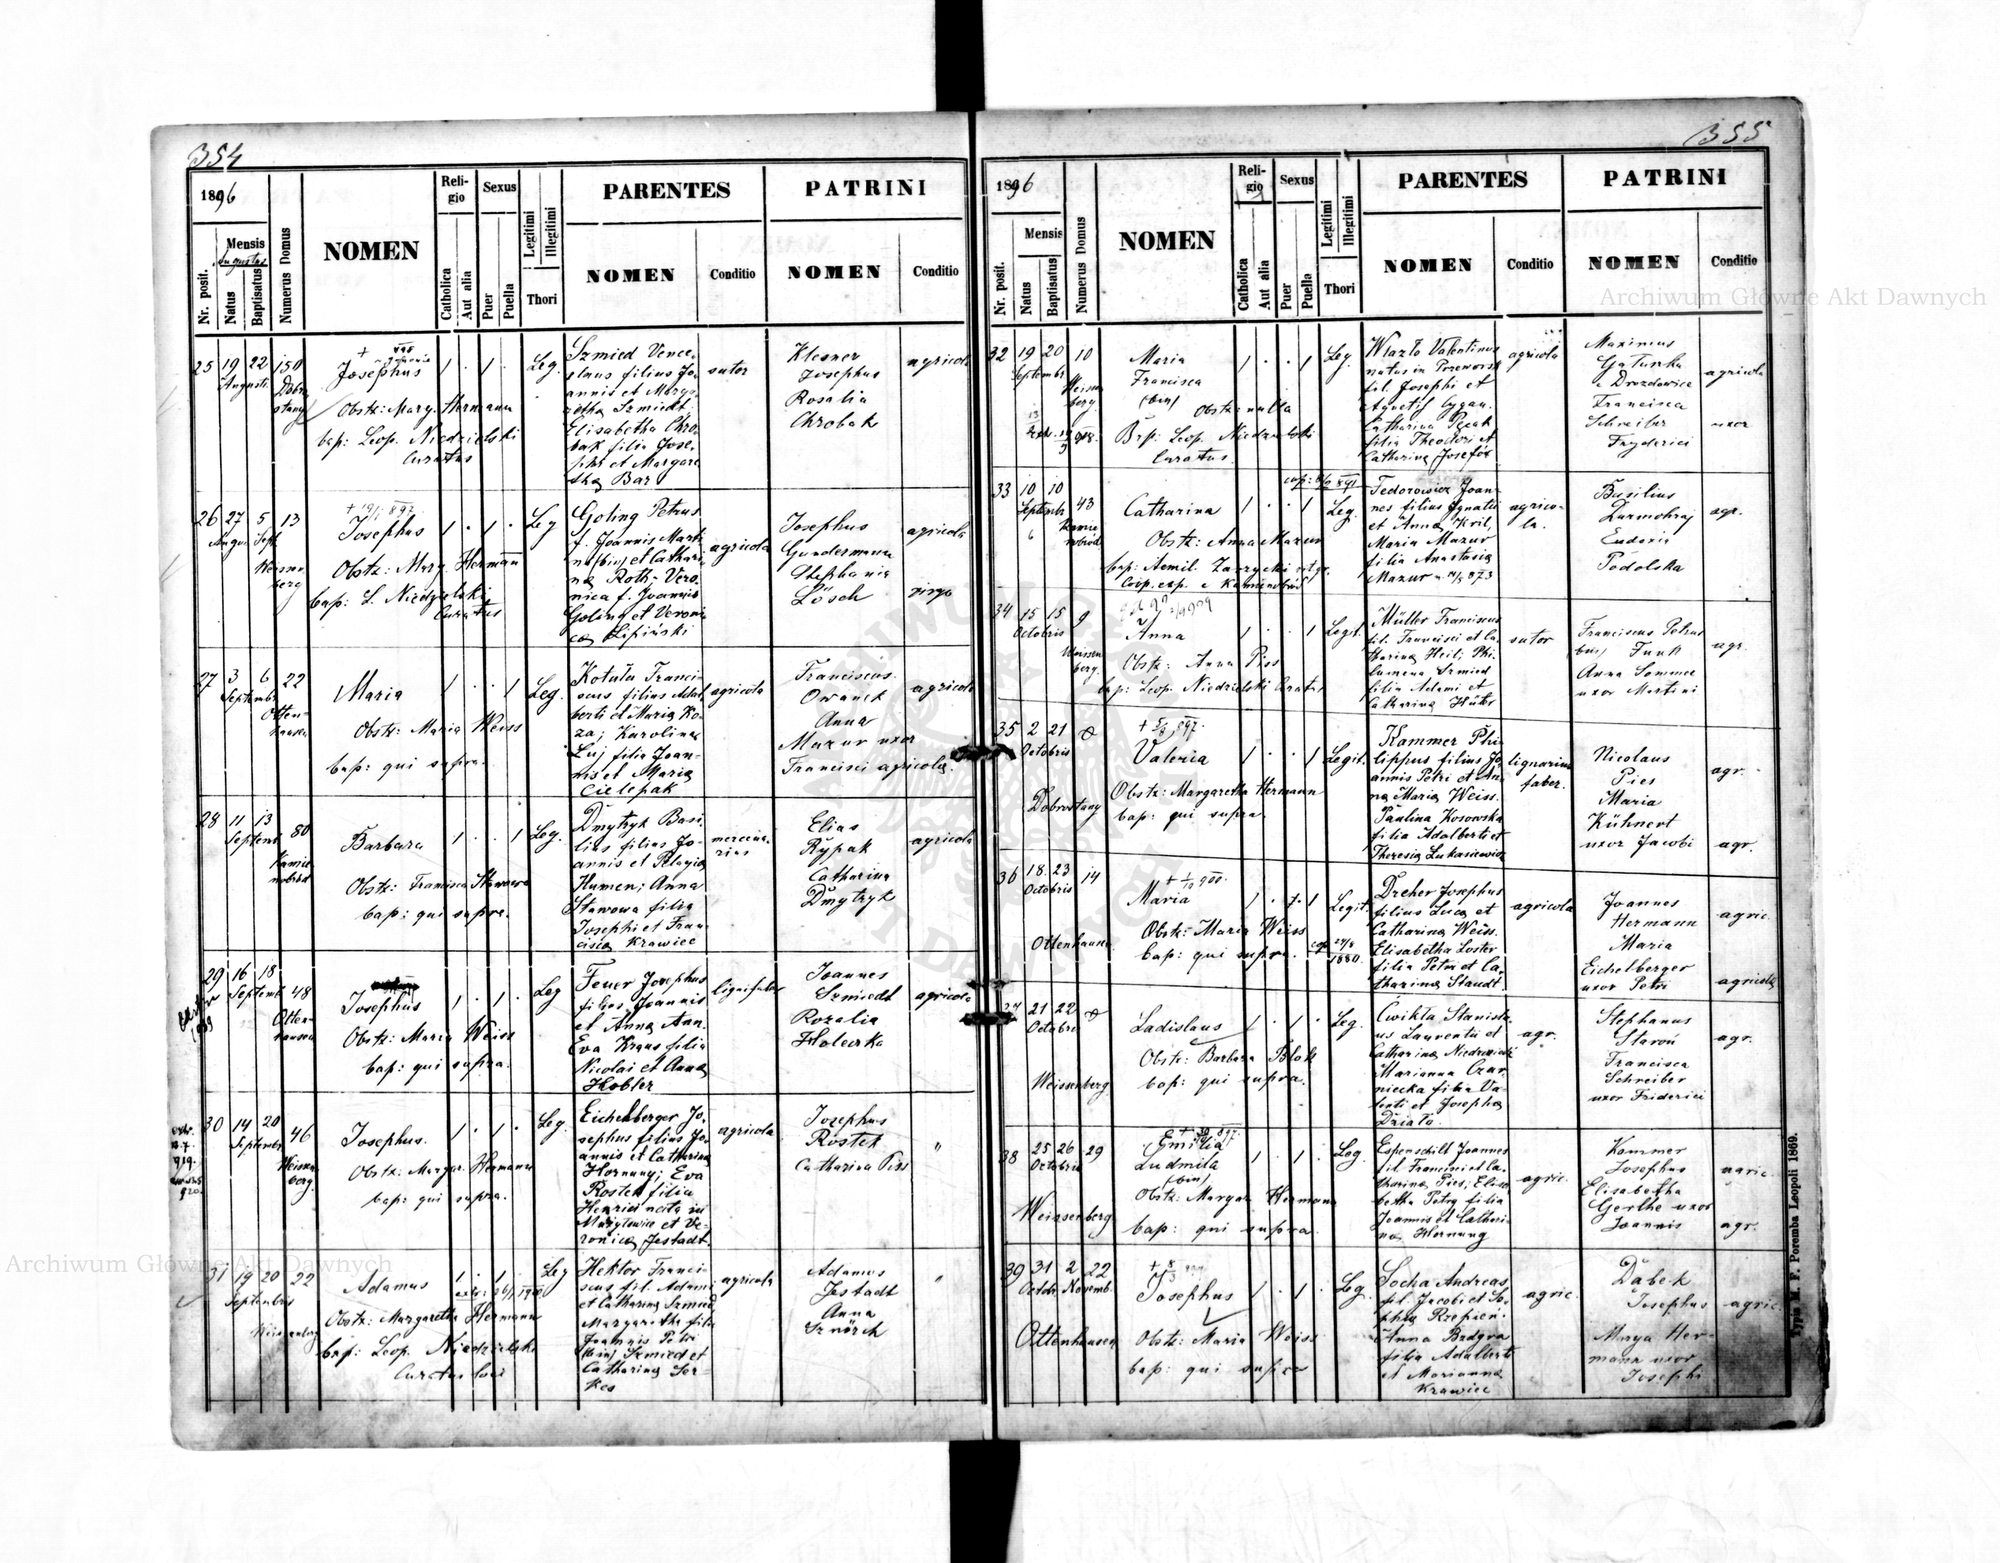 354
1896
Nr. posit.
Mensis
Augustus
Natus
Baptisatus
Numerus Domus
NOMEN
Religio
Catholica
Aut alia
Sexus
Puer
Puella
Legitimi
Illegitimi
Thori
PARENTES
NOMEN
Conditio
PATRINI
NOMEN
Conditio
25 19 22 150
Augusti
Josephus
Obstx: Marg. Hermann
bap: Leop. Niedzielski
Curatus
1 . 1 . Leg.
Szmied Vence-
slaus filius Jo-
annis et Marga-
retha Szmiedt,
Elisabetha Chro-
bak filia Jose-
phi et Margare-
tha Bar
sutor
Klesner
Josephus
Rosalia
Chrobak
agricola
26 27 5 13
Sept.
Josephus
Obstx: Marg. Hermann
bap: L. Niedzielski
Curatus
1 . 1 . Leg
Goling Petrus
f. Joannis Marti
ni (bin) et Cathari
na Roth; Vero-
nica f. Joannis
Goling et Veroni
ca Lipiński
agricola
Josephus
Gundermann
Stephania
Lösch
agricola
virgo
27 3 6 22
Septembr
Otten-
hausen
Maria
Obstx: Maria Weiss
bap: qui supra.
1 . . 1 Leg.
Kotula Franci-
scus filius Adal
berti et Maria Ko-
za; Karolina
Luj filia Joan-
nis et Maria
Cielepak
agricola
Franciscus
Owanek
Anna
Mazur uxor
Francisci agricola.
agricola
28 11 13 80
Septemb
Kamie
nobród
Barbara
Obstx: Francisca Stawowa
bap: qui supra.
1 . . 1 Leg.
Dmytryk Basi-
lius filius Jo-
annis et Pelagia
Humen; Anna
Stawowa filia
Josephi et Fran-
cisca Krawiec
mercena-
rius
Elias
Rypak
Catharina
Dmytryk
agricola
29 16 18 48
Septemb
Otten-
hausen
Josephus
Obstx: Maria Weiss
bap: qui supra.
1 . 1 . Leg
Feuer Josephus
filius Joannis
et Anna Ann.
Eva Kraus filia
Nicolai et Anna
Hobler
lignifaber
Joannes
Szmiedt
Rozalia
agricola
30 14 20 46
Septembr
Weissen
berg.
Josephus.
Obstx: Margar. Hermann
bap: qui supra.
1 . 1 . Leg.
Eichelberger Jo-
sephus filius Jo-
annis et Catharina
Hornung; Eva
Rostek filia
Henrici nata in
et Ve-
ronica Jestadt.
agricola
Josephus
Rostek
Catharina Piss
"
31 19 20 22
Septembris
Adamus
Obstx: Margaretha Hermann
bap: Leop. Niedzielski
Curatus loci
1 . 1 . Leg
Hektor Franci-
scus fil. Adami
et Catharina Szmied
Margaretha filia
Joannis Petri
(bin) Szmied et
Catharina Ser-
kes
agricola
Adamus
Jestadt
Anna
"
355
1896
Nr. posit.
Mensis
Natus
Baptisatus
Numerus Domus
NOMEN
Religio
Catholica
Aut alia
Sexus
Puer
Puella
Legitimi
Illegitimi
Thori
PARENTES
NOMEN
Conditio
PATRINI
NOMEN
Conditio
32 19 20 10
Septembr
Weissen
berg.
Maria
Francisca
(bin)
Obstx: nulla
Bap: Leop. Niedzielski
Curatus.
1 . . 1 Leg.
Wlazło Valentinus
natus in Przeworsk
fil. Josephi et
Agnetis Cygan.
Catharina Pecak
filia Theodori et
Catharina Josefów
agricola
Maximus
Gatunka
e Drozdowice
Francisca
Schreiber
Fryderici
agricola
uxor
33 10 10 43
Septembr
Kamie
nobród
Catharina
Obstx: Anna Mazur
bap: Aemil. Zarzycki
Coop. exp. e Kamienobród
1 . . 1 Leg.
Fedorowicz Joan-
nes filius Ignatii
et Anna Kril,
Maria Mazur
filia Anastasia
Mazur
agrico-
la.
Basilius
Eudoxia
Podolska
agr.
34 15 15 9
Octobris
Weissen
berg.
Anna
Obstx: Anna Piss
bap: Leop. Niedzielski Curatus
1 . . 1 Legit.
Müller Franciscus
fil. Francisci et Ca-
tharina Heil; Phi-
lumena Szmied
filia Adami et
Catharina Hüter
sutor
Franciscus Petrus
(bin) Funk
Anna Sommer
uxor Martini
agr.
35 2 21
Octobris
Dobrostany
Valeria
Obstx: Margaretha Hermann
bap: qui supra.
1 . . 1 Legit.
Kammer Phi-
lippus filius Jo-
annis Petri et An-
na Maria Weiss.
Paulina Kosowska
filia Adalberti et
Theresia Łukasiewicz
lignarius
faber.
Nicolaus
Pies
Maria
Kühnert
uxor Jacobi
agr.
agr.
36 18 23 14
Octobris
Ottenhausen
Maria
Obstx: Maria Weiss
bap: qui supra.
Legit.
Dreher Josephus
filius Luca et
Catharina Weiss.
Elisabetha Loster
filia Petri et Ca-
tharina Staudt.
agricola
Joannes
Hermann
Maria
Eichelberger
uxor Petri
agric.
agricola
37 21 22
Octobris
Weissenberg.
Ladislaus
Obstx: Barbara Blok
bap: qui supra.
1 . 1 . Leg.
Cwikta Stanisla-
us Laurentii et
Catharina
Marianna Czar-
niecka filia Va-
lenti et Josepha
Dziato.
agr.
Stephanus
Staroń
Francisca
Schreiber
uxor Friderici
agr.
38 25 26 29
Octobris
Weissenberg
Emilia
Ludmila
(bin)
Obstx: Margar. Hermann
bap: qui supra.
1 . 1 . Leg.
Espenschilt Joannes
fil. Francisci et Ca-
tharina Pies; Elisa-
betha Petry filia
Joannis et Cathari-
na Hornung
agric.
Kammer
Josephus
Elisabetha
Gerthe uxor
Joannis
agric.
agr.
39 31 2 22
Octobr. Novemb.
Ottenhausen
Josephus
Obstx: Maria Weiss
bap: qui supra
1 . 1 . Leg.
Socha Andreas
fil. Jacobi et So-
phia Rzepień.
Anna Badyra
filia Adalberti
et Marianna
Krawiec
agric.
Dabek
Josephus
Marya Her-
mann uxor
Josephi
agric.
Typis M. F. Poremba Leopoli 1869.
Archiwum Główne Akt Dawnych
Archiwum Główne Akt Dawnych